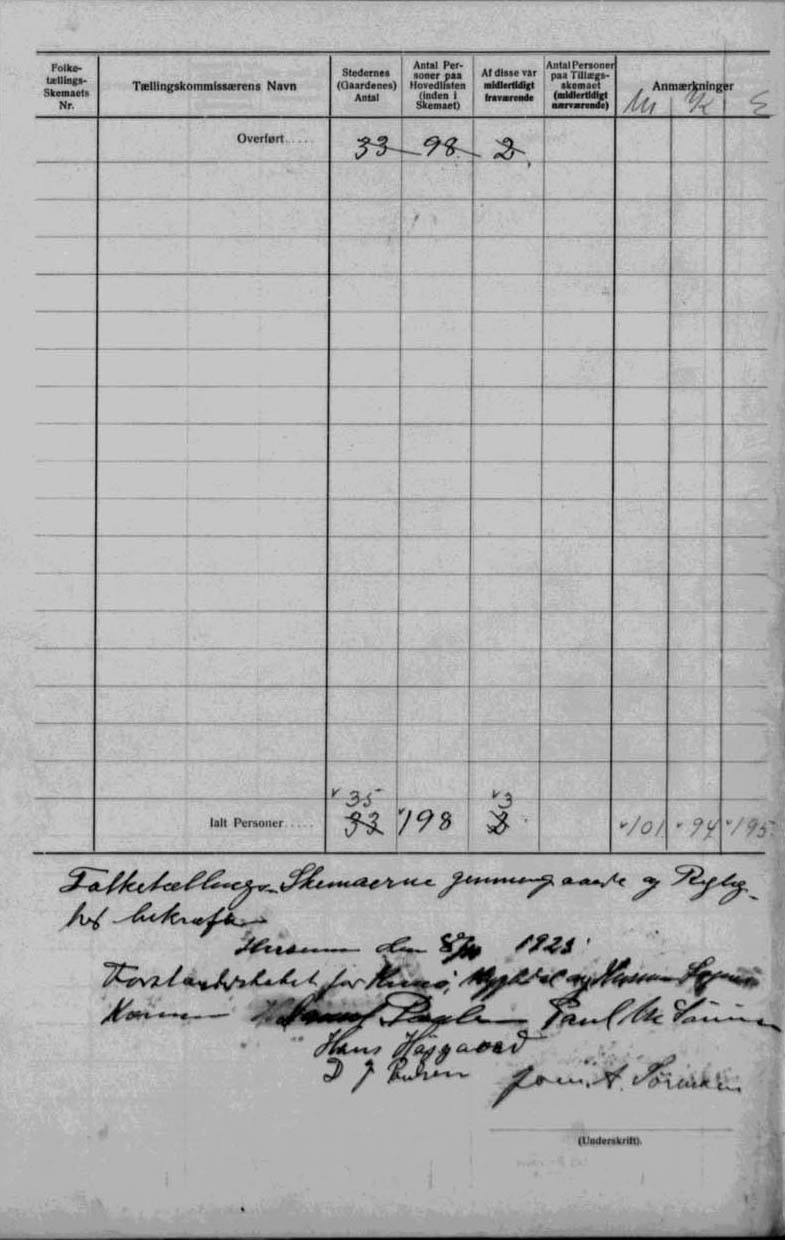 Folketællings-Skemaets Nr.
Tællingskommissærens Navn
Stedernes (Gaardenes) Antal
Antal Personer paa Hovedlisten (inden i Skemaet)
Af disse var midlertidigt fraværende
Antal Personer paa Tillægsskemaet (midlertidigt nærværende)
Anmærkninger
M K E
Overført..... 33 98 2
35 3
Ialt Personer..... 33 198 2 101 94 195
Folketællings-Skemaerne gennemgaaede og Rigtig-
hed bekræfte
den 1925
Forstanderskabet for og
Poul
Hans Højgaard
D J
(Underskrift).